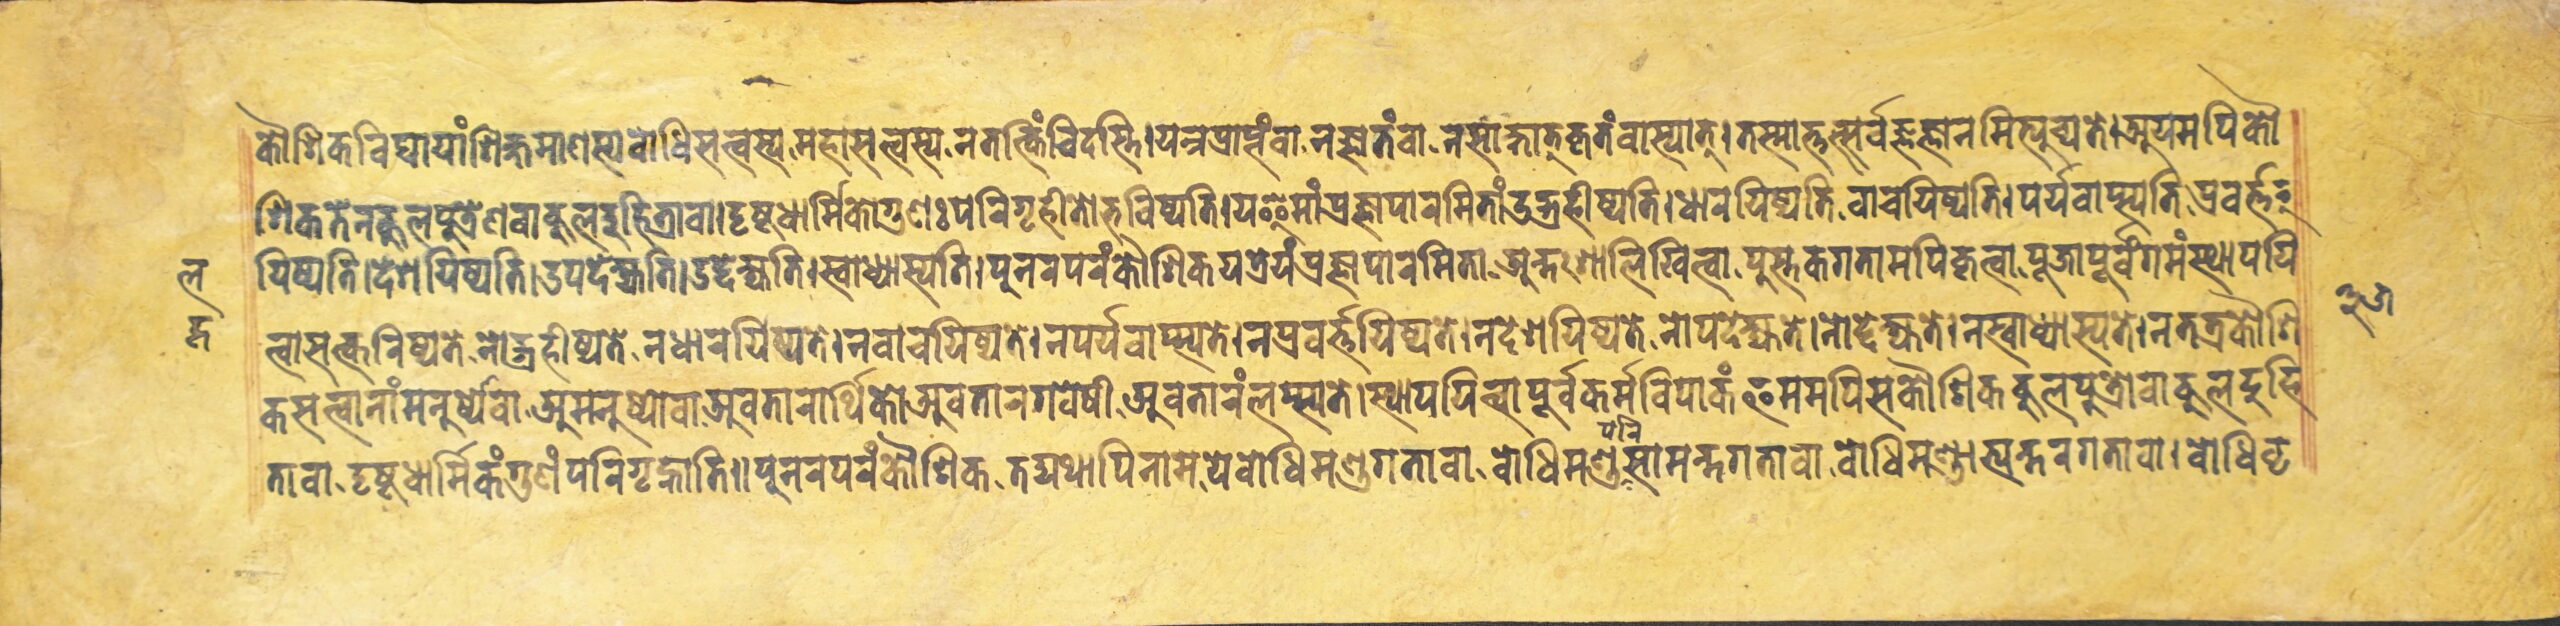 कौशिक विद्यायां शिक्षमाणस्य बोधिसत्त्वस्य महासत्त्वस्य न तत्किंचिदस्ति। यन्न प्राप्तं वा न ज्ञातं वा न साक्षात्कृतं वा स्यात्। तस्मात्तत्सर्वज्ञज्ञानमित्युच्यते। अयमपि कौ
शिक तेन कुलपुत्रेण वा कुलदुहित्रा वा। दृष्टधार्मिको गुणः परिगृहीतो भविष्यति। य इमां प्रज्ञापारमितां उद्ग्रहीष्यति। धारयिष्यति वाचयिष्यति। पर्यवाप्स्यति प्रवर्त्त
यिष्यति। देशयिष्यति। उपदेक्ष्यति। उद्देक्ष्यति। स्वाध्यास्यति। पुनरपरं कौशिक यत्रेयं प्रज्ञापारमिता अन्तःशा लिखित्वा पुस्तकगतामपि कृत्वा पूजापूर्वंगमं स्थापयि
त्वा सत्करिष्यते नोद्ग्रहीष्यते न धारयिष्यते। न वाचयिष्यते। न पर्यवाप्स्यते। न प्रवर्त्तयिष्यते। न देशयिष्यते नोपदेक्ष्यते। नोद्देक्ष्यते। न स्वाध्यास्यते। न तत्र कौशि
क सत्त्वानां मनुष्ये वा अमनुष्यो वा अवतारार्थिको अवतारगवेषी अवतारं लप्स्यते। स्थापयित्वा पूर्वकर्मविपाकं इममपि स कौशिक कुलपुत्रो वा कुलदुहि
परि
ता वा दृष्टधार्मिकं गुणं परिगृह्णाति॥ पुनरपरं कौशिक तद्यथापि नाम ये बोधिमण्डगता वा बोधिमण्डसामन्तगता वा बोधिमण्डाभ्यन्तरगता वा। बोधिवृ